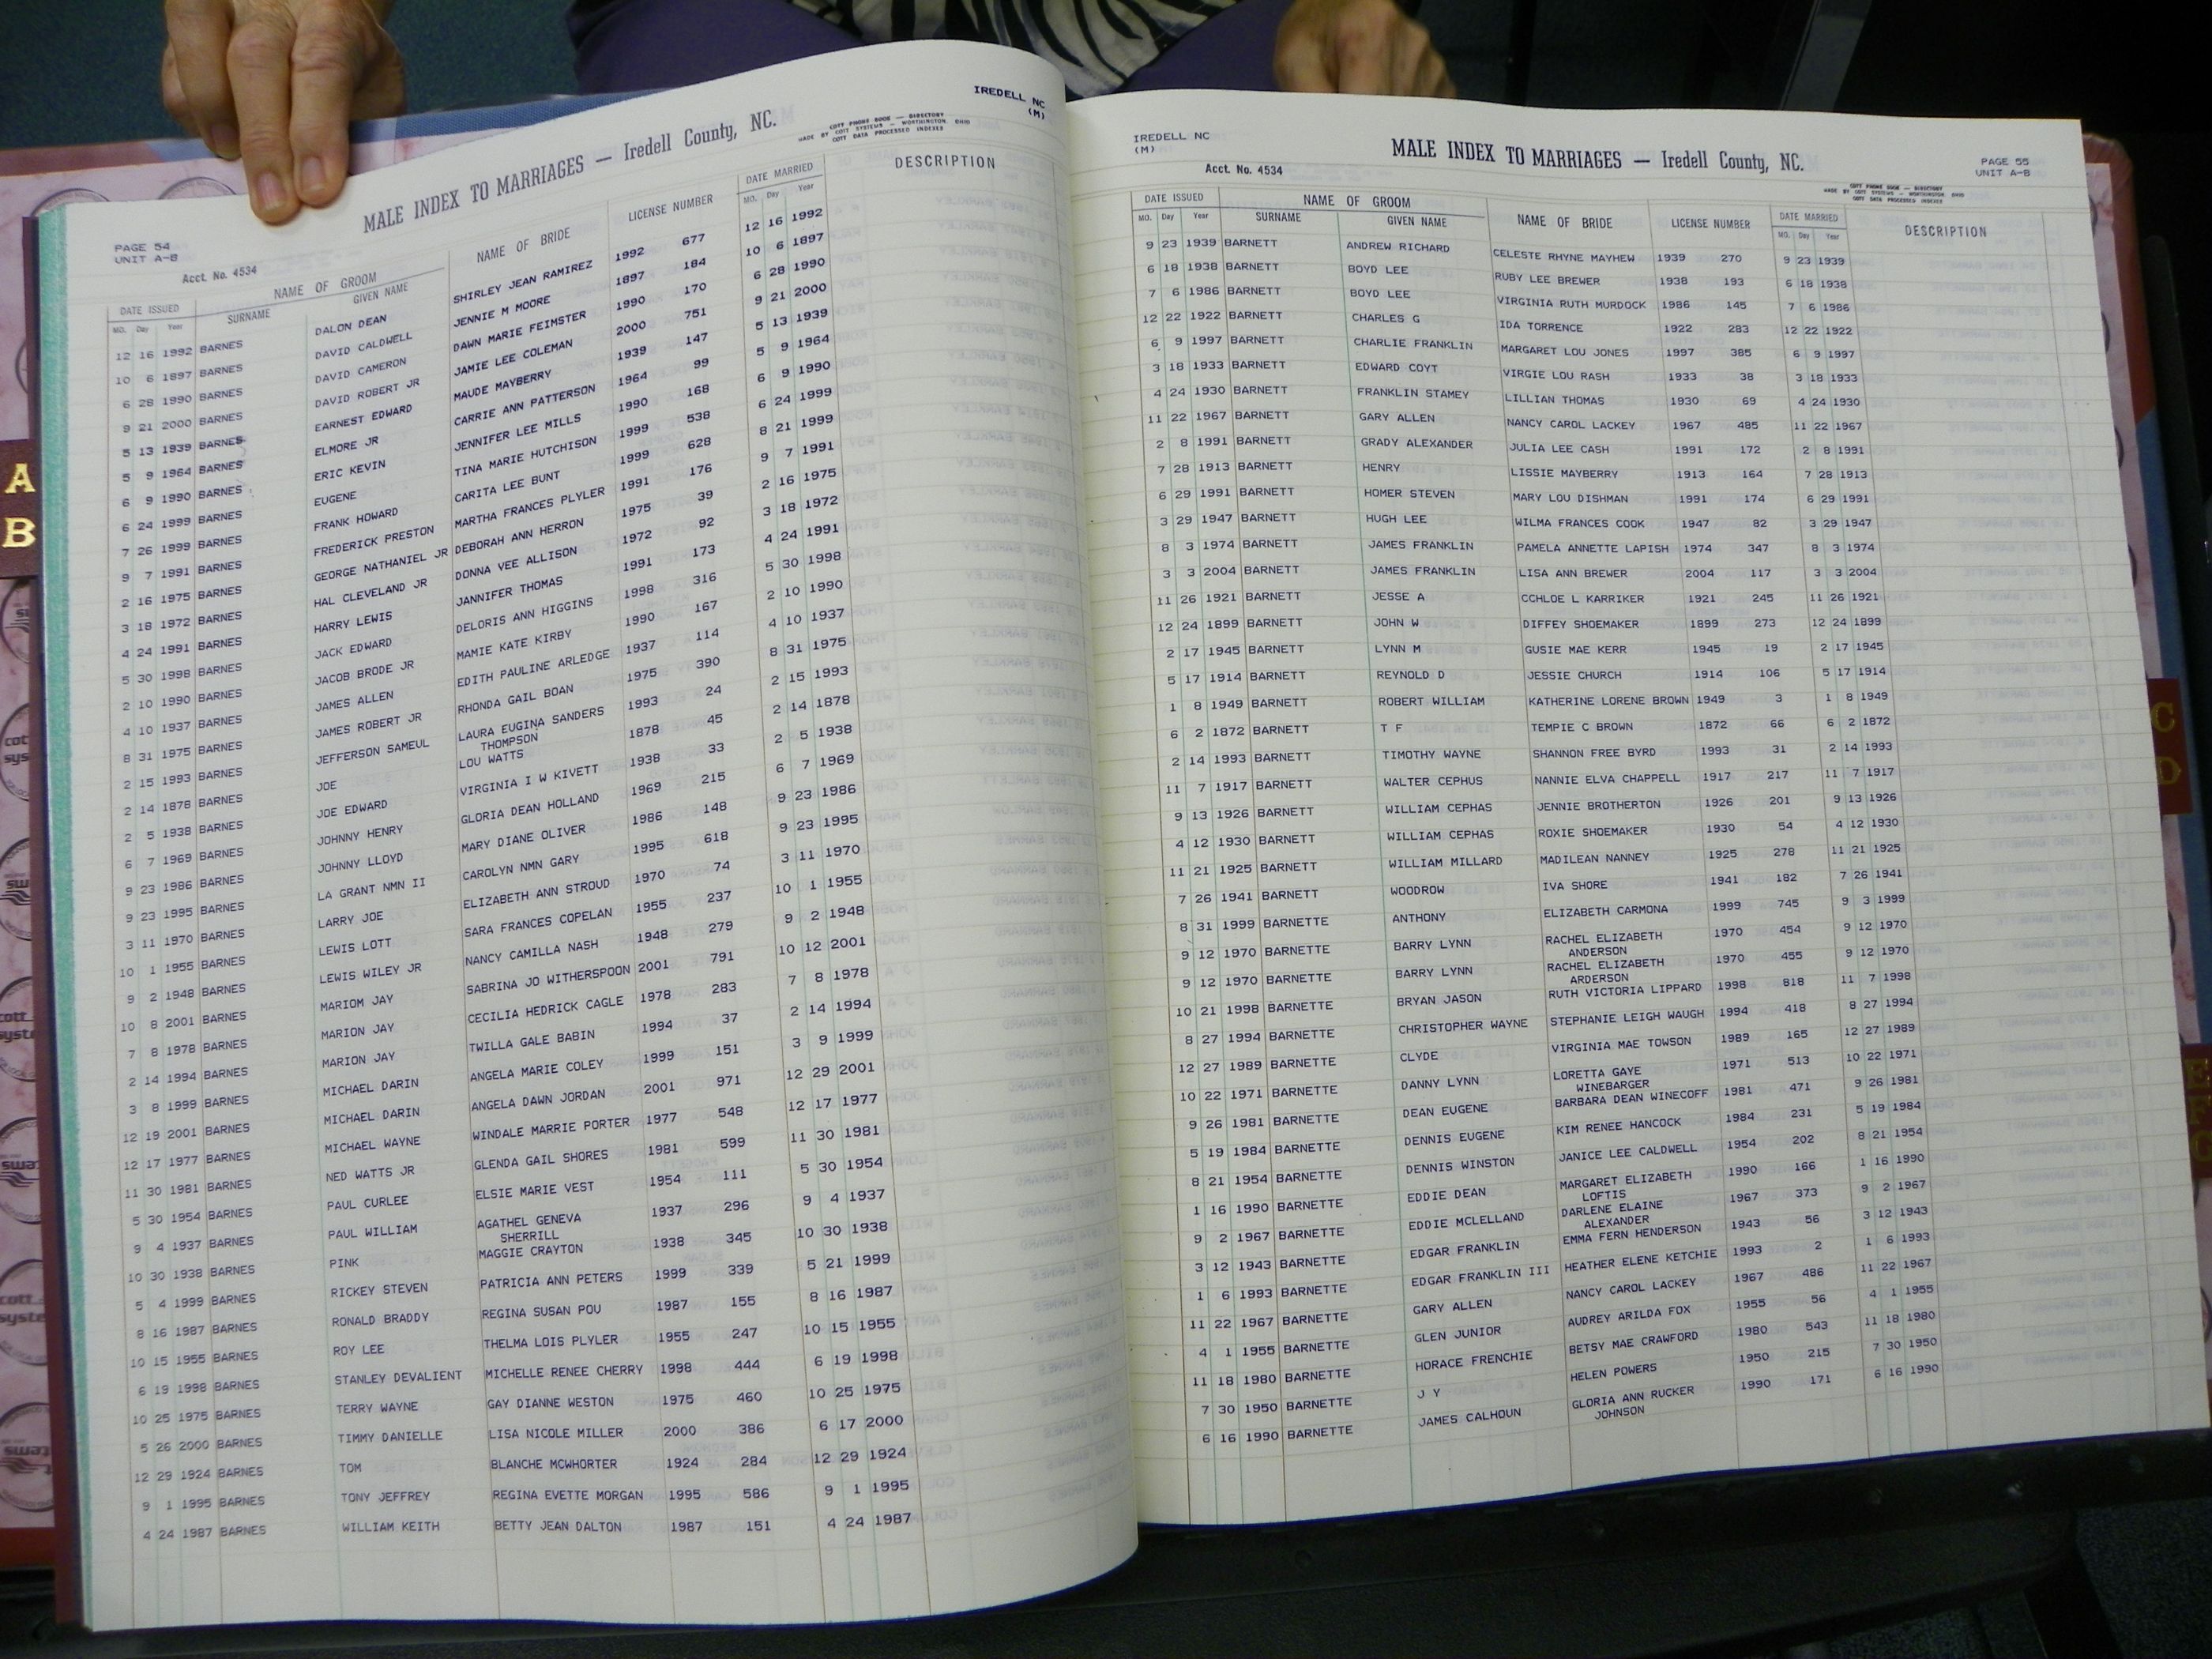 IREDELL NC
(M)
MALE INDEX TO MARRIAGES — Iredell County, NC.
COTT PHONE BOOK — DIRECTORY
MADE BY COTT SYSTEMS — WORTHINGTON, OHIO
COTT DATA PROCESSED INDEXES
PAGE 54
UNIT A-B
Acct. No. 4534
DATE ISSUED NAME OF GROOM NAME OF BRIDE LICENSE NUMBER DATE MARRIED DESCRIPTION
MO. Day Year SURNAME GIVEN NAME MO. Day Year
12 16 1992 BARNES DALON DEAN SHIRLEY JEAN RAMIREZ 1992 677 12 16 1992
10 6 1897 BARNES DAVID CALDWELL JENNIE M MOORE 1897 184 10 6 1897
6 28 1990 BARNES DAVID CAMERON DAWN MARIE FEIMSTER 1990 170 6 28 1990
9 21 2000 BARNES DAVID ROBERT JR JAMIE LEE COLEMAN 2000 751 9 21 2000
5 13 1939 BARNES EARNEST EDWARD MAUDE MAYBERRY 1939 147 5 13 1939
5 9 1964 BARNES ELMORE JR CARRIE ANN PATTERSON 1964 99 5 9 1964
6 9 1990 BARNES ERIC KEVIN JENNIFER LEE MILLS 1990 168 6 9 1990
6 24 1999 BARNES EUGENE TINA MARIE HUTCHISON 1999 538 6 24 1999
7 26 1999 BARNES FRANK HOWARD CARITA LEE BUNT 1999 628 8 21 1999
9 7 1991 BARNES FREDERICK PRESTON MARTHA FRANCES PLYLER 1991 176 9 7 1991
2 16 1975 BARNES GEORGE NATHANIEL JR DEBORAH ANN HERRON 1975 39 2 16 1975
3 18 1972 BARNES HAL CLEVELAND JR DONNA VEE ALLISON 1972 92 3 18 1972
4 24 1991 BARNES HARRY LEWIS JANNIFER THOMAS 1991 173 4 24 1991
5 30 1998 BARNES JACK EDWARD DELORIS ANN HIGGINS 1998 316 5 30 1998
2 10 1990 BARNES JACOB BRODE JR MAMIE KATE KIRBY 1990 167 2 10 1990
4 10 1937 BARNES JAMES ALLEN EDITH PAULINE ARLEDGE 1937 114 4 10 1937
8 31 1975 BARNES JAMES ROBERT JR RHONDA GAIL BOAN 1975 390 8 31 1975
2 15 1993 BARNES JEFFERSON SAMEUL LAURA EUGINA SANDERS 1993 24 2 15 1993
THOMPSON
2 14 1878 BARNES JOE LOU WATTS 1878 45 2 14 1878
2 5 1938 BARNES JOE EDWARD VIRGINIA I W KIVETT 1938 33 2 5 1938
6 7 1969 BARNES JOHNNY HENRY GLORIA DEAN HOLLAND 1969 215 6 7 1969
9 23 1986 BARNES JOHNNY LLOYD MARY DIANE OLIVER 1986 148 9 23 1986
9 23 1995 BARNES LA GRANT NMN II CAROLYN NMN GARY 1995 618 9 23 1995
3 11 1970 BARNES LARRY JOE ELIZABETH ANN STROUD 1970 74 3 11 1970
10 1 1955 BARNES LEWIS LOTT SARA FRANCES COPELAN 1955 237 10 1 1955
9 2 1948 BARNES LEWIS WILEY JR NANCY CAMILLA NASH 1948 279 9 2 1948
10 8 2001 BARNES MARIOM JAY SABRINA JO WITHERSPOON 2001 791 10 12 2001
7 8 1978 BARNES MARION JAY CECILIA HEDRICK CAGLE 1978 283 7 8 1978
2 14 1994 BARNES MARION JAY TWILLA GALE BABIN 1994 37 2 14 1994
3 8 1999 BARNES MICHAEL DARIN ANGELA MARIE COLEY 1999 151 3 9 1999
12 19 2001 BARNES MICHAEL DARIN ANGELA DAWN JORDAN 2001 971 12 29 2001
12 17 1977 BARNES MICHAEL WAYNE WINDALE MARRIE PORTER 1977 548 12 17 1977
11 30 1981 BARNES NED WATTS JR GLENDA GAIL SHORES 1981 599 11 30 1981
5 30 1954 BARNES PAUL CURLEE ELSIE MARIE VEST 1954 111 5 30 1954
9 4 1937 BARNES PAUL WILLIAM AGATHEL GENEVA 1937 296 9 4 1937
SHERRILL
10 30 1938 BARNES PINK MAGGIE CRAYTON 1938 345 10 30 1938
5 4 1999 BARNES RICKEY STEVEN PATRICIA ANN PETERS 1999 339 5 21 1999
8 16 1987 BARNES RONALD BRADDY REGINA SUSAN POU 1987 155 8 16 1987
10 15 1955 BARNES ROY LEE THELMA LOIS PLYLER 1955 247 10 15 1955
6 19 1998 BARNES STANLEY DEVALIENT MICHELLE RENEE CHERRY 1998 444 6 19 1998
10 25 1975 BARNES TERRY WAYNE GAY DIANNE WESTON 1975 460 10 25 1975
5 26 2000 BARNES TIMMY DANIELLE LISA NICOLE MILLER 2000 386 6 17 2000
12 29 1924 BARNES TOM BLANCHE MCWHORTER 1924 284 12 29 1924
9 1 1995 BARNES TONY JEFFREY REGINA EVETTE MORGAN 1995 586 9 1 1995
4 24 1987 BARNES WILLIAM KEITH BETTY JEAN DALTON 1987 151 4 24 1987
IREDELL NC
(M)
MALE INDEX TO MARRIAGES — Iredell County, NC.
PAGE 55
UNIT A-B
Acct. No. 4534
COTT PHONE BOOK — DIRECTORY
MADE BY COTT SYSTEMS — WORTHINGTON, OHIO
COTT DATA PROCESSED INDEXES
DATE ISSUED NAME OF GROOM NAME OF BRIDE LICENSE NUMBER DATE MARRIED DESCRIPTION
MO. Day Year SURNAME GIVEN NAME MO. Day Year
9 23 1939 BARNETT ANDREW RICHARD CELESTE RHYNE MAYHEW 1939 270 9 23 1939
6 18 1938 BARNETT BOYD LEE RUBY LEE BREWER 1938 193 6 18 1938
7 6 1986 BARNETT BOYD LEE VIRGINIA RUTH MURDOCK 1986 145 7 6 1986
12 22 1922 BARNETT CHARLES G IDA TORRENCE 1922 283 12 22 1922
6 9 1997 BARNETT CHARLIE FRANKLIN MARGARET LOU JONES 1997 385 6 9 1997
3 18 1933 BARNETT EDWARD COYT VIRGIE LOU RASH 1933 38 3 18 1933
4 24 1930 BARNETT FRANKLIN STAMEY LILLIAN THOMAS 1930 69 4 24 1930
11 22 1967 BARNETT GARY ALLEN NANCY CAROL LACKEY 1967 485 11 22 1967
2 8 1991 BARNETT GRADY ALEXANDER JULIA LEE CASH 1991 172 2 8 1991
7 28 1913 BARNETT HENRY LISSIE MAYBERRY 1913 164 7 28 1913
6 29 1991 BARNETT HOMER STEVEN MARY LOU DISHMAN 1991 174 6 29 1991
3 29 1947 BARNETT HUGH LEE WILMA FRANCES COOK 1947 82 3 29 1947
8 3 1974 BARNETT JAMES FRANKLIN PAMELA ANNETTE LAPISH 1974 347 8 3 1974
3 3 2004 BARNETT JAMES FRANKLIN LISA ANN BREWER 2004 117 3 3 2004
11 26 1921 BARNETT JESSE A CCHLOE L KARRIKER 1921 245 11 26 1921
12 24 1899 BARNETT JOHN W DIFFEY SHOEMAKER 1899 273 12 24 1899
2 17 1945 BARNETT LYNN M GUSIE MAE KERR 1945 19 2 17 1945
5 17 1914 BARNETT REYNOLD D JESSIE CHURCH 1914 106 5 17 1914
1 8 1949 BARNETT ROBERT WILLIAM KATHERINE LORENE BROWN 1949 3 1 8 1949
6 2 1872 BARNETT T F TEMPIE C BROWN 1872 66 6 2 1872
2 14 1993 BARNETT TIMOTHY WAYNE SHANNON FREE BYRD 1993 31 2 14 1993
11 7 1917 BARNETT WALTER CEPHUS NANNIE ELVA CHAPPELL 1917 217 11 7 1917
9 13 1926 BARNETT WILLIAM CEPHAS JENNIE BROTHERTON 1926 201 9 13 1926
4 12 1930 BARNETT WILLIAM CEPHAS ROXIE SHOEMAKER 1930 54 4 12 1930
11 21 1925 BARNETT WILLIAM MILLARD MADILEAN NANNEY 1925 278 11 21 1925
7 26 1941 BARNETT WOODROW IVA SHORE 1941 182 7 26 1941
8 31 1999 BARNETTE ANTHONY ELIZABETH CARMONA 1999 745 9 3 1999
9 12 1970 BARNETTE BARRY LYNN RACHEL ELIZABETH 1970 454 9 12 1970
ANDERSON
9 12 1970 BARNETTE BARRY LYNN RACHEL ELIZABETH 1970 455 9 12 1970
ARDERSON
10 21 1998 BARNETTE BRYAN JASON RUTH VICTORIA LIPPARD 1998 818 11 7 1998
8 27 1994 BARNETTE CHRISTOPHER WAYNE STEPHANIE LEIGH WAUGH 1994 418 8 27 1994
12 27 1989 BARNETTE CLYDE VIRGINIA MAE TOWSON 1989 165 12 27 1989
10 22 1971 BARNETTE DANNY LYNN LORETTA GAYE 1971 513 10 22 1971
WINEBARGER
9 26 1981 BARNETTE DEAN EUGENE BARBARA DEAN WINECOFF 1981 471 9 26 1981
5 19 1984 BARNETTE DENNIS EUGENE KIM RENEE HANCOCK 1984 231 5 19 1984
8 21 1954 BARNETTE DENNIS WINSTON JANICE LEE CALDWELL 1954 202 8 21 1954
1 16 1990 BARNETTE EDDIE DEAN MARGARET ELIZABETH 1990 166 1 16 1990
LOFTIS
9 2 1967 BARNETTE EDDIE MCLELLAND DARLENE ELAINE 1967 373 9 2 1967
ALEXANDER
3 12 1943 BARNETTE EDGAR FRANKLIN EMMA FERN HENDERSON 1943 56 3 12 1943
1 6 1993 BARNETTE EDGAR FRANKLIN III HEATHER ELENE KETCHIE 1993 2 1 6 1993
11 22 1967 BARNETTE GARY ALLEN NANCY CAROL LACKEY 1967 486 11 22 1967
4 1 1955 BARNETTE GLEN JUNIOR AUDREY ARILDA FOX 1955 56 4 1 1955
11 18 1980 BARNETTE HORACE FRENCHIE BETSY MAE CRAWFORD 1980 543 11 18 1980
7 30 1950 BARNETTE J Y HELEN POWERS 1950 215 7 30 1950
6 16 1990 BARNETTE JAMES CALHOUN GLORIA ANN RUCKER 1990 171 6 16 1990
JOHNSON
A
B
C
D
E